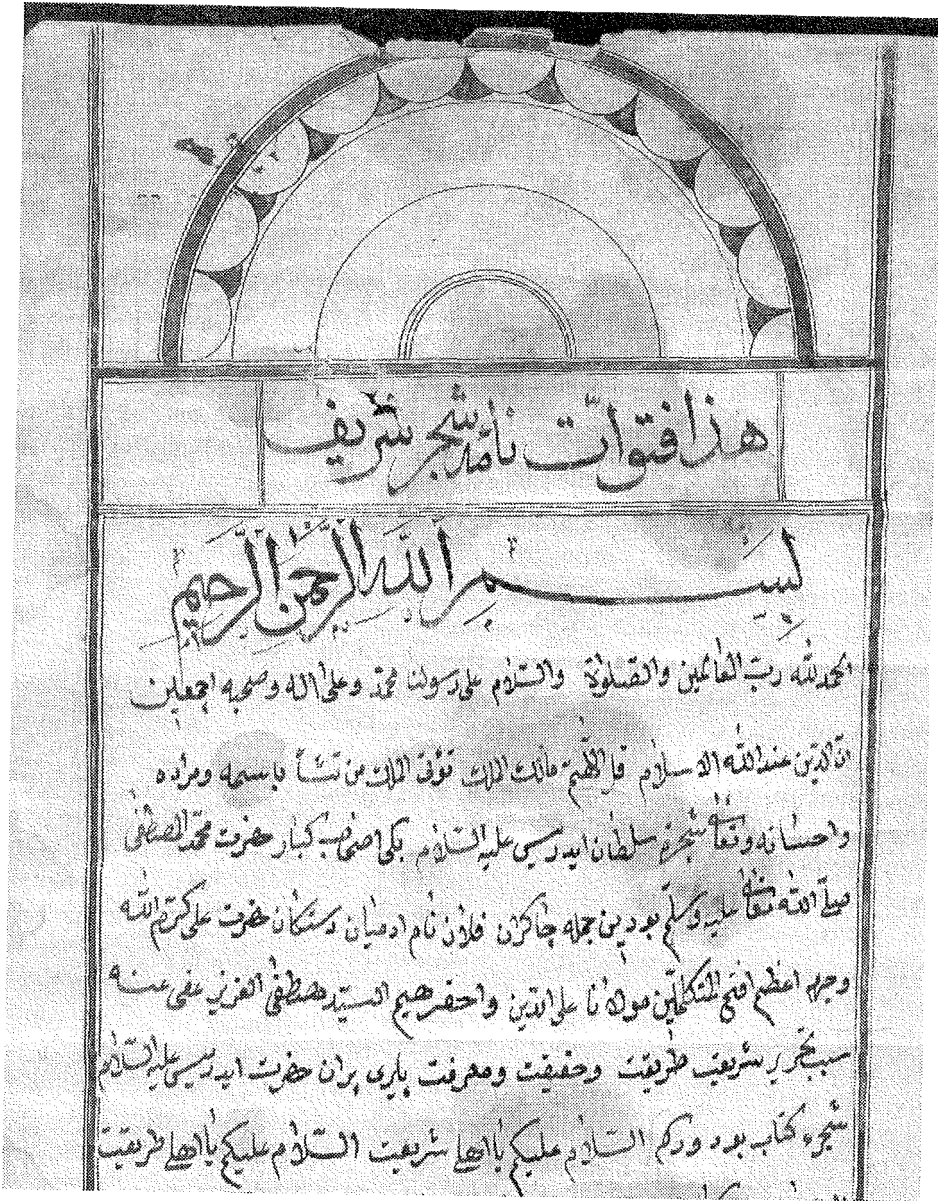 هذا فتوات نامه شجر شريف
بِسْمِ اللّٰهِ الرَّحْمٰنِ الرَّحِيمِ
الحمد لله ربّ العالمين والصّلوٰة والسّلام على رسولنا محمّد وعلى اله وصحبه اجمعين
انّ الدّين عند الله الاسلام قل اللّهمّ مالك الملك تؤتى الملك من تشآ باسمه ومراده
واحسانه وتعالى شجرهٔ سلطان ايدريسى عليه السّلام يكى اصحاب كبار حضرت محمّد المصطفى
صلّى الله تعالى عليه وسلّم بود بن جمله چاكران فلان نام ادميان دستكان حضرت على كرّم الله
وجهه اعظم افتح المتكلّمين مولانا على الدّين واحقر السيّد مصطفى العزيز عفى عنه
سبب تحرير شريعت طريقت وحقيقت ومعرفت پيران حضرت ايدريسى عليه السّلام
شجرهٔ كتاب بود السّلام عليكم يا اهل شريعت السّلام عليكم يا اهل طريقت